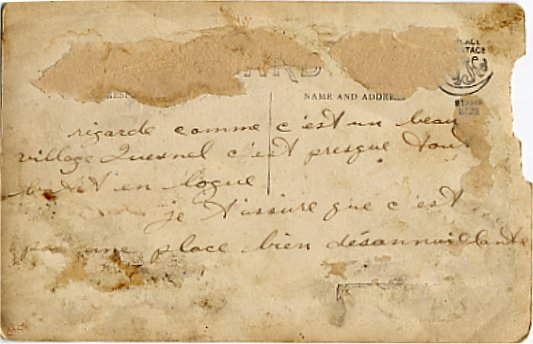 ARD
NAME AND ADDRESS
PLACE
STAGE
STAMP
HERE
regarde comme c'est un beau
village Quesnel c'est presque tout
batit en logue
je t'assure que c'est
pas une place bien désannuillante